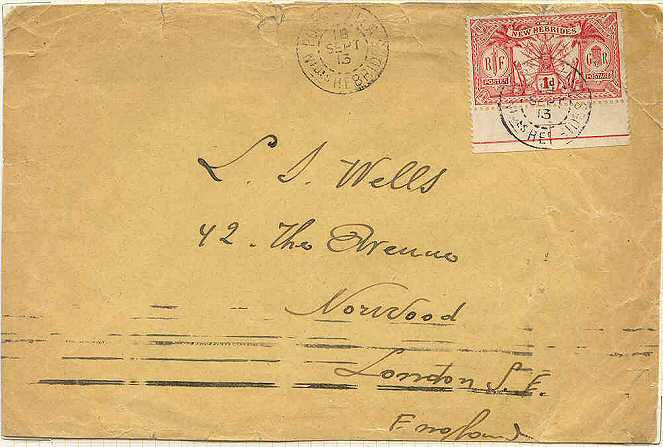 18
SEPT
13
NEW HEBRIDES
NEW HEBRIDES
R F G R
POSTES 1d POSTAGE
SEPT
13
L. S. Wells
42 - The Avenue
Norwood
London S.E.
England